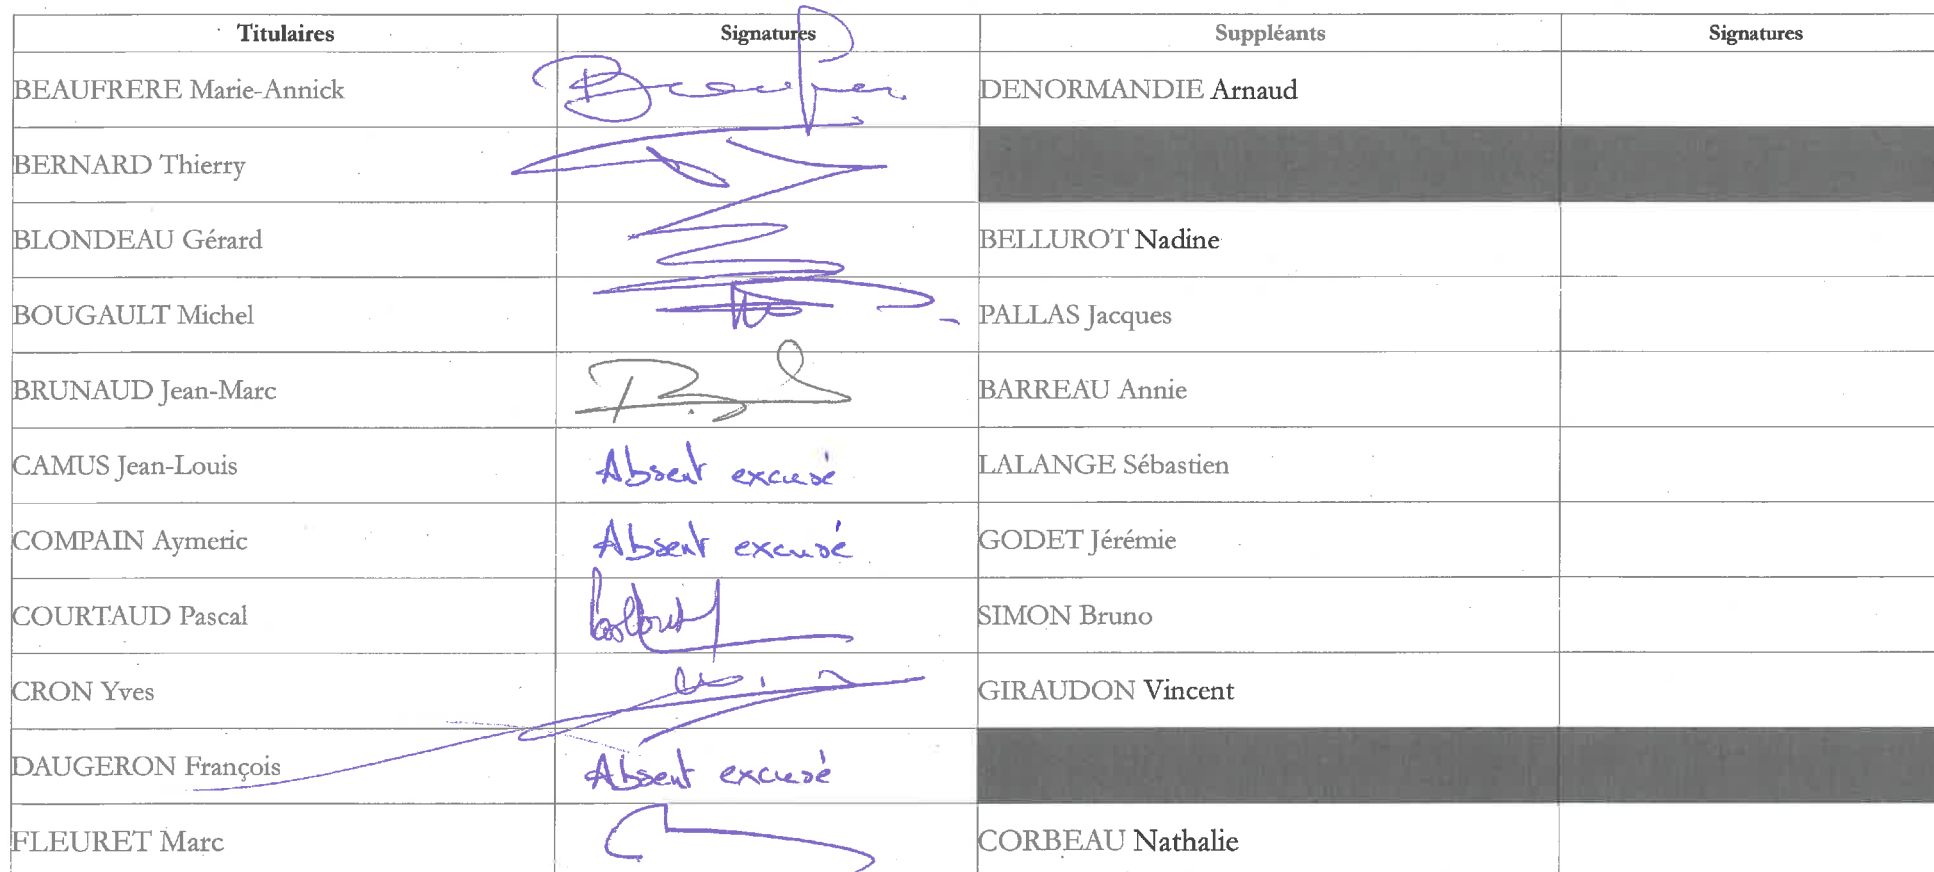 Titulaires Signatures Suppléants Signatures
BEAUFRERE Marie-Annick DENORMANDIE Arnaud
BERNARD Thierry
BLONDEAU Gérard BELLUROT Nadine
BOUGAULT Michel PALLAS Jacques
BRUNAUD Jean-Marc BARREAU Annie
CAMUS Jean-Louis Absent excusé LALANGE Sébastien
COMPAIN Aymeric Absent excusé GODET Jérémie
COURTAUD Pascal SIMON Bruno
CRON Yves GIRAUDON Vincent
DAUGERON François Absent excusé
FLEURET Marc CORBEAU Nathalie